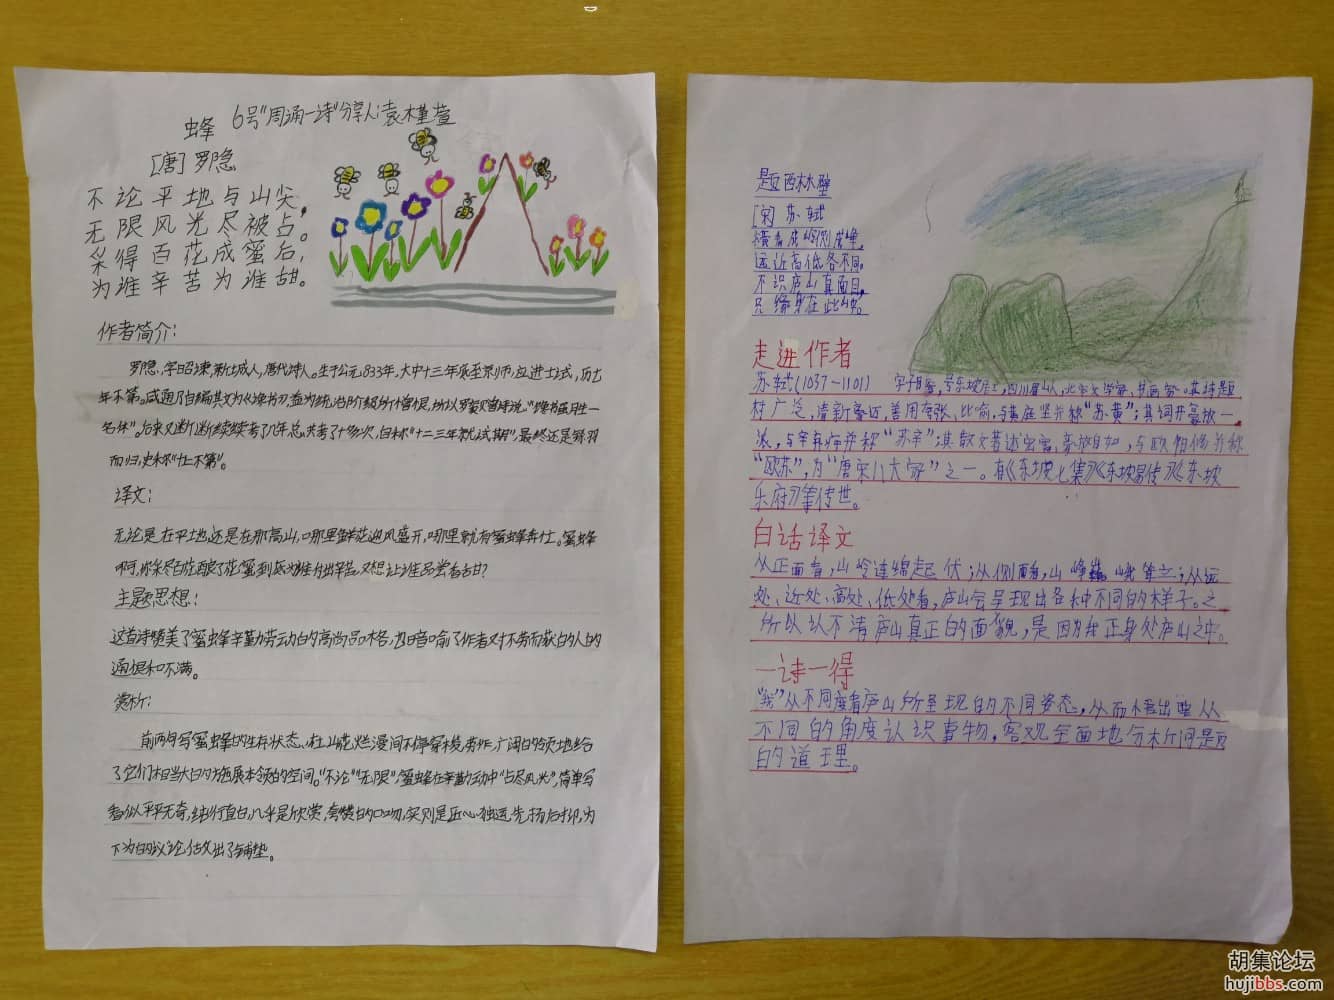 蜂 6号"周诵一诗"分享人:袁槿萱
[唐]罗隐
不论平地与山尖,
无限风光尽被占。
采得百花成蜜后,
为谁辛苦为谁甜。
作者简介:
罗隐,字昭谏,新城人,唐代诗人。生于公元833年,大中十三年底至京师,应进士试,历七
年不第。咸通八年自编其文为《谗书》,益为统治阶级所憎恨,所以罗衮赠诗说:"谗书虽胜一
名休"。后来又断断续续考了几年,总共考了十多次,自称"十二三年就试期",最终还是铩羽
而归,史称"十上不第"。
译文:
无论是在平地还是在那高山,哪里鲜花迎风盛开,哪里就有蜜蜂奔忙。蜜蜂
啊,你采尽百花酿了花蜜,到底为谁付出辛苦,又想让谁品尝香甜?
主题思想:
这首诗赞美了蜜蜂辛勤劳动的高尚品格,也暗喻了作者对不劳而获的人的
痛恨和不满。
赏析:
前两句写蜜蜂的生存状态,在山花烂漫间不停穿梭、劳作,广阔的领地给
了它们相当大的施展本领的空间。"不论""无限",蜜蜂在辛勤劳动中"占尽风光",简单写
看似平平无奇,纯行直白,几乎是欣赏、夸赞的口吻,实则是匠心独运,先扬后抑,为
下为的议论估文出了与铺垫。
题西林壁
[宋]苏轼
横看成岭侧成峰,
远近高低各不同。
不识庐山真面目,
只缘身在此山中。
走进作者
苏轼(1037-1101) 字子瞻,号东坡居士,四川眉山人,北宋文学家、书画家。其诗题
材广泛,清新豪迈,善用夸张、比喻,与黄庭坚并称"苏黄";其词开豪放一
派,与辛弃疾并称"苏辛";其散文著述宏富,豪放自如,与欧阳修并称
"欧苏",为"唐宋八大家"之一。有《东坡七集》《东坡易传》《东坡
乐府》等传世。
白话译文
从正面看,山岭连绵起伏;从侧面看,山峰巍峨耸立;从远
处、近处、高处、低处看,庐山会呈现出各种不同的样子。之
所以认不清庐山真正的面貌,是因为我正身处庐山之中。
一诗一得
"我"从不同度看庐山所呈现的不同姿态,从而悟出要从
不同的角度认识事物,客观全面地分析问题
的道理。
胡集论坛
hujibbs.com